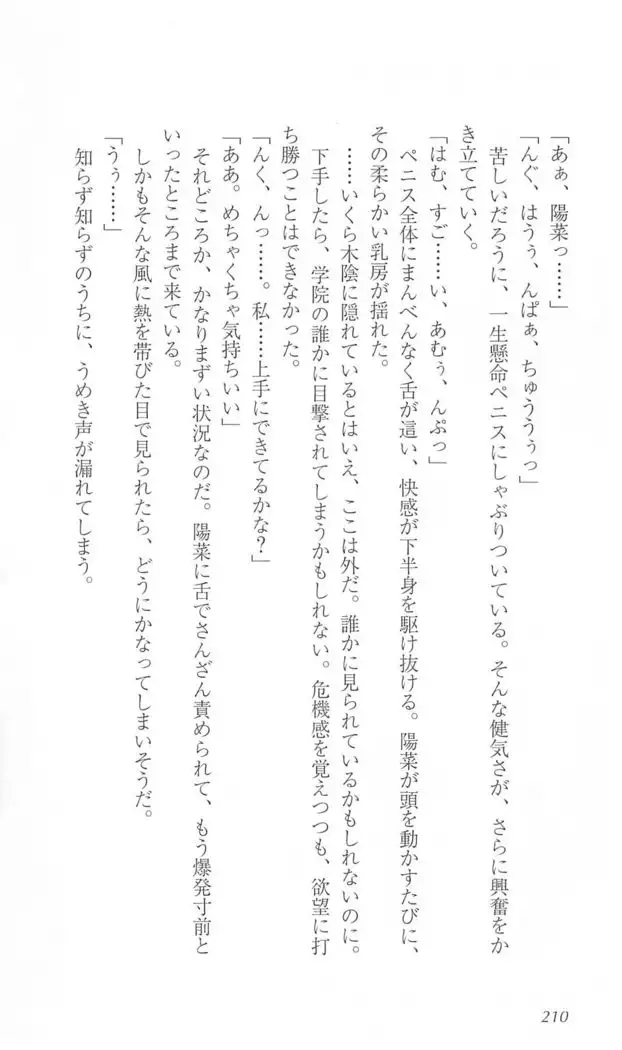 「あぁ、陽菜っ……」
「んぐ、はうぅ、んぱぁ、ちゅううぅっ」
苦しいだろうに、一生懸命ペニスにしゃぶりついている。そんな健気さが、さらに興奮をか
き立てていく。
「はむ、すご……い、あむぅ、んぷっ」
ペニス全体にまんべんなく舌が這い、快感が下半身を駆け抜ける。陽菜が頭を動かすたびに、
その柔らかい乳房が揺れた。
……いくら木陰に隠れているとはいえ、ここは外だ。誰かに見られているかもしれないのに。
下手したら、学院の誰かに目撃されてしまうかもしれない。危機感を覚えつつも、欲望に打
ち勝つことはできなかった。
「んく、んっ……。私……上手にできてるかな？」
「ああ。めちゃくちゃ気持ちいい」
それどころか、かなりまずい状況なのだ。陽菜に舌でさんざん責められて、もう爆発寸前と
いったところまで来ている。
しかもそんな風に熱を帯びた目で見られたら、どうにかなってしまいそうだ。
「うぅ……」
知らず知らずのうちに、うめき声が漏れてしまう。
210